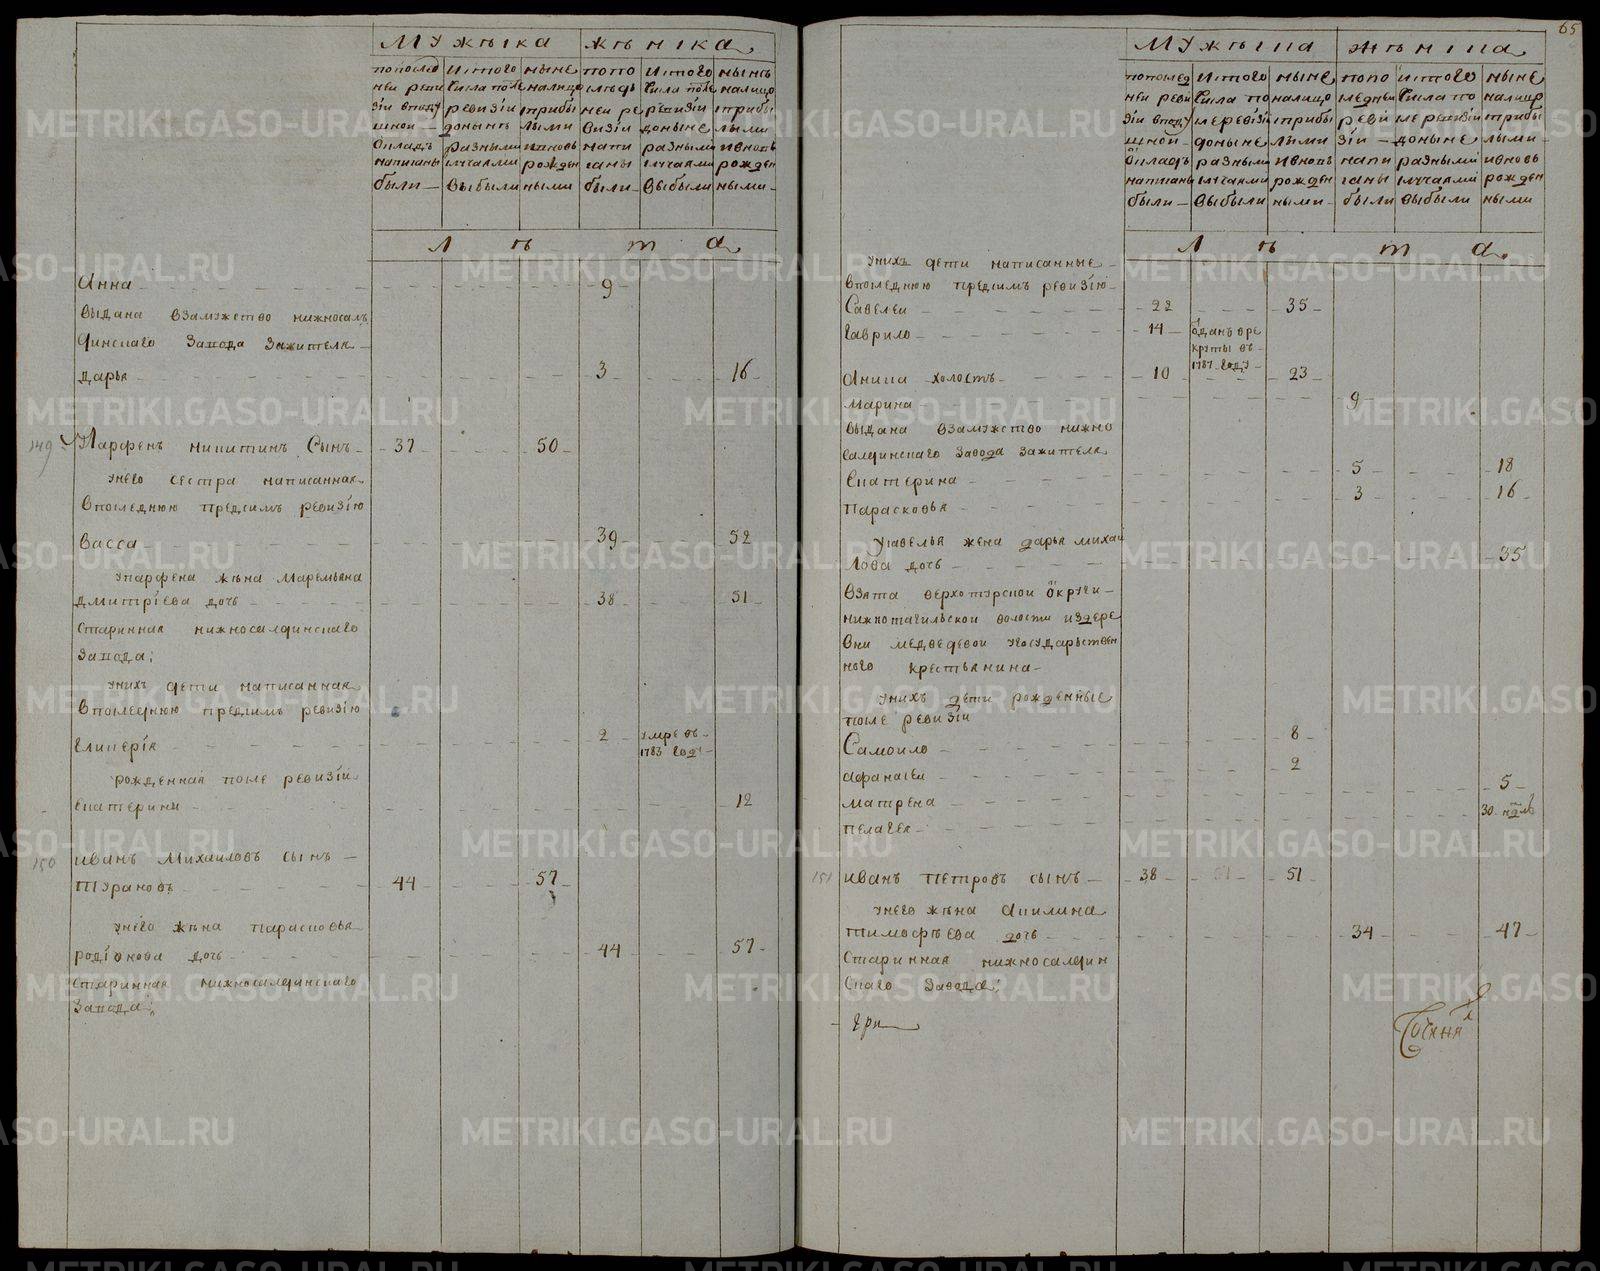 Мужеска женска
По послед ней реви зіи в поду шной окладъ написаны были
Изтого числа после ревизіи донынѣ разными случаями выбыли
Ныне налицо с прибы лыми и вновь рожден ными
По по следней ре визіи напи саны были
Изтого числа после ревизіи доныне разными случаями выбыли
Нынѣ налицо с прибы лыми и вновь рожден ными
Л ѣ т а
Анна 9
выдана взамужство нижносал
динскаго завода зажителя
Дарья 3 16
149 Парфенъ никитинъ сынъ 37 50
унего сестра написанная
впоследнюю предсимъ ревизію
Васса 39 52
упарфена жѣна маремьяна
дмитріева дочь 38 51
старинная нижносалдинскаго
завода;
унихъ дети написанная
впоследнюю предсимъ ревизію
Гликерія 2 умре въ
1783 году
рожденная после ревизіи
екатерина 12
150 иванъ михаиловъ сынъ
Турановъ 44 57
унего жѣна парасковья
родіонова дочь 44 57
старинная нижносалдинскаго
завода;
65
Мужеска женска
По послед ней реви зіи в поду шной окладъ написаны были
Изтого числа по сле ревизіи доныне разными случаями выбыли
Ныне налицо с прибы лыми и вновь рожден ными
По по следней реви зіи напи саны были
Изтого числа по сле ревизіи доныне разными случаями выбыли
Ныне налицо с прибы лыми и вновь рожден ными
Л ѣ т а
унихъ дети написанные
впоследнюю предсимъ ревизію
Савелеи 22 35
Гаврило 14 Ѿданъ вре
круты въ
1787 году
Аника холостъ 10 23
марина 9
выдана взамужство нижно
салдинскаго завода зажителя
Екатерина 5 18
Парасковья 3 16
усавелья жена дарья михаи
лова дочь 35
взята верхотурской округи
нижнотагильской волости издере
вни медведевой угосударствен
наго крестьянина
унихъ дети рожденные
после ревизіи
Самоило 8
афанасеи 2
матрена 5
пелагея 30 нѣдѣль
151 иванъ петровъ сынъ 38 51
унего жѣна акилина
тимофѣева дочь 34 47
старинная нижносалдин
скаго завода;
METRIKI.GASO-URAL.RU